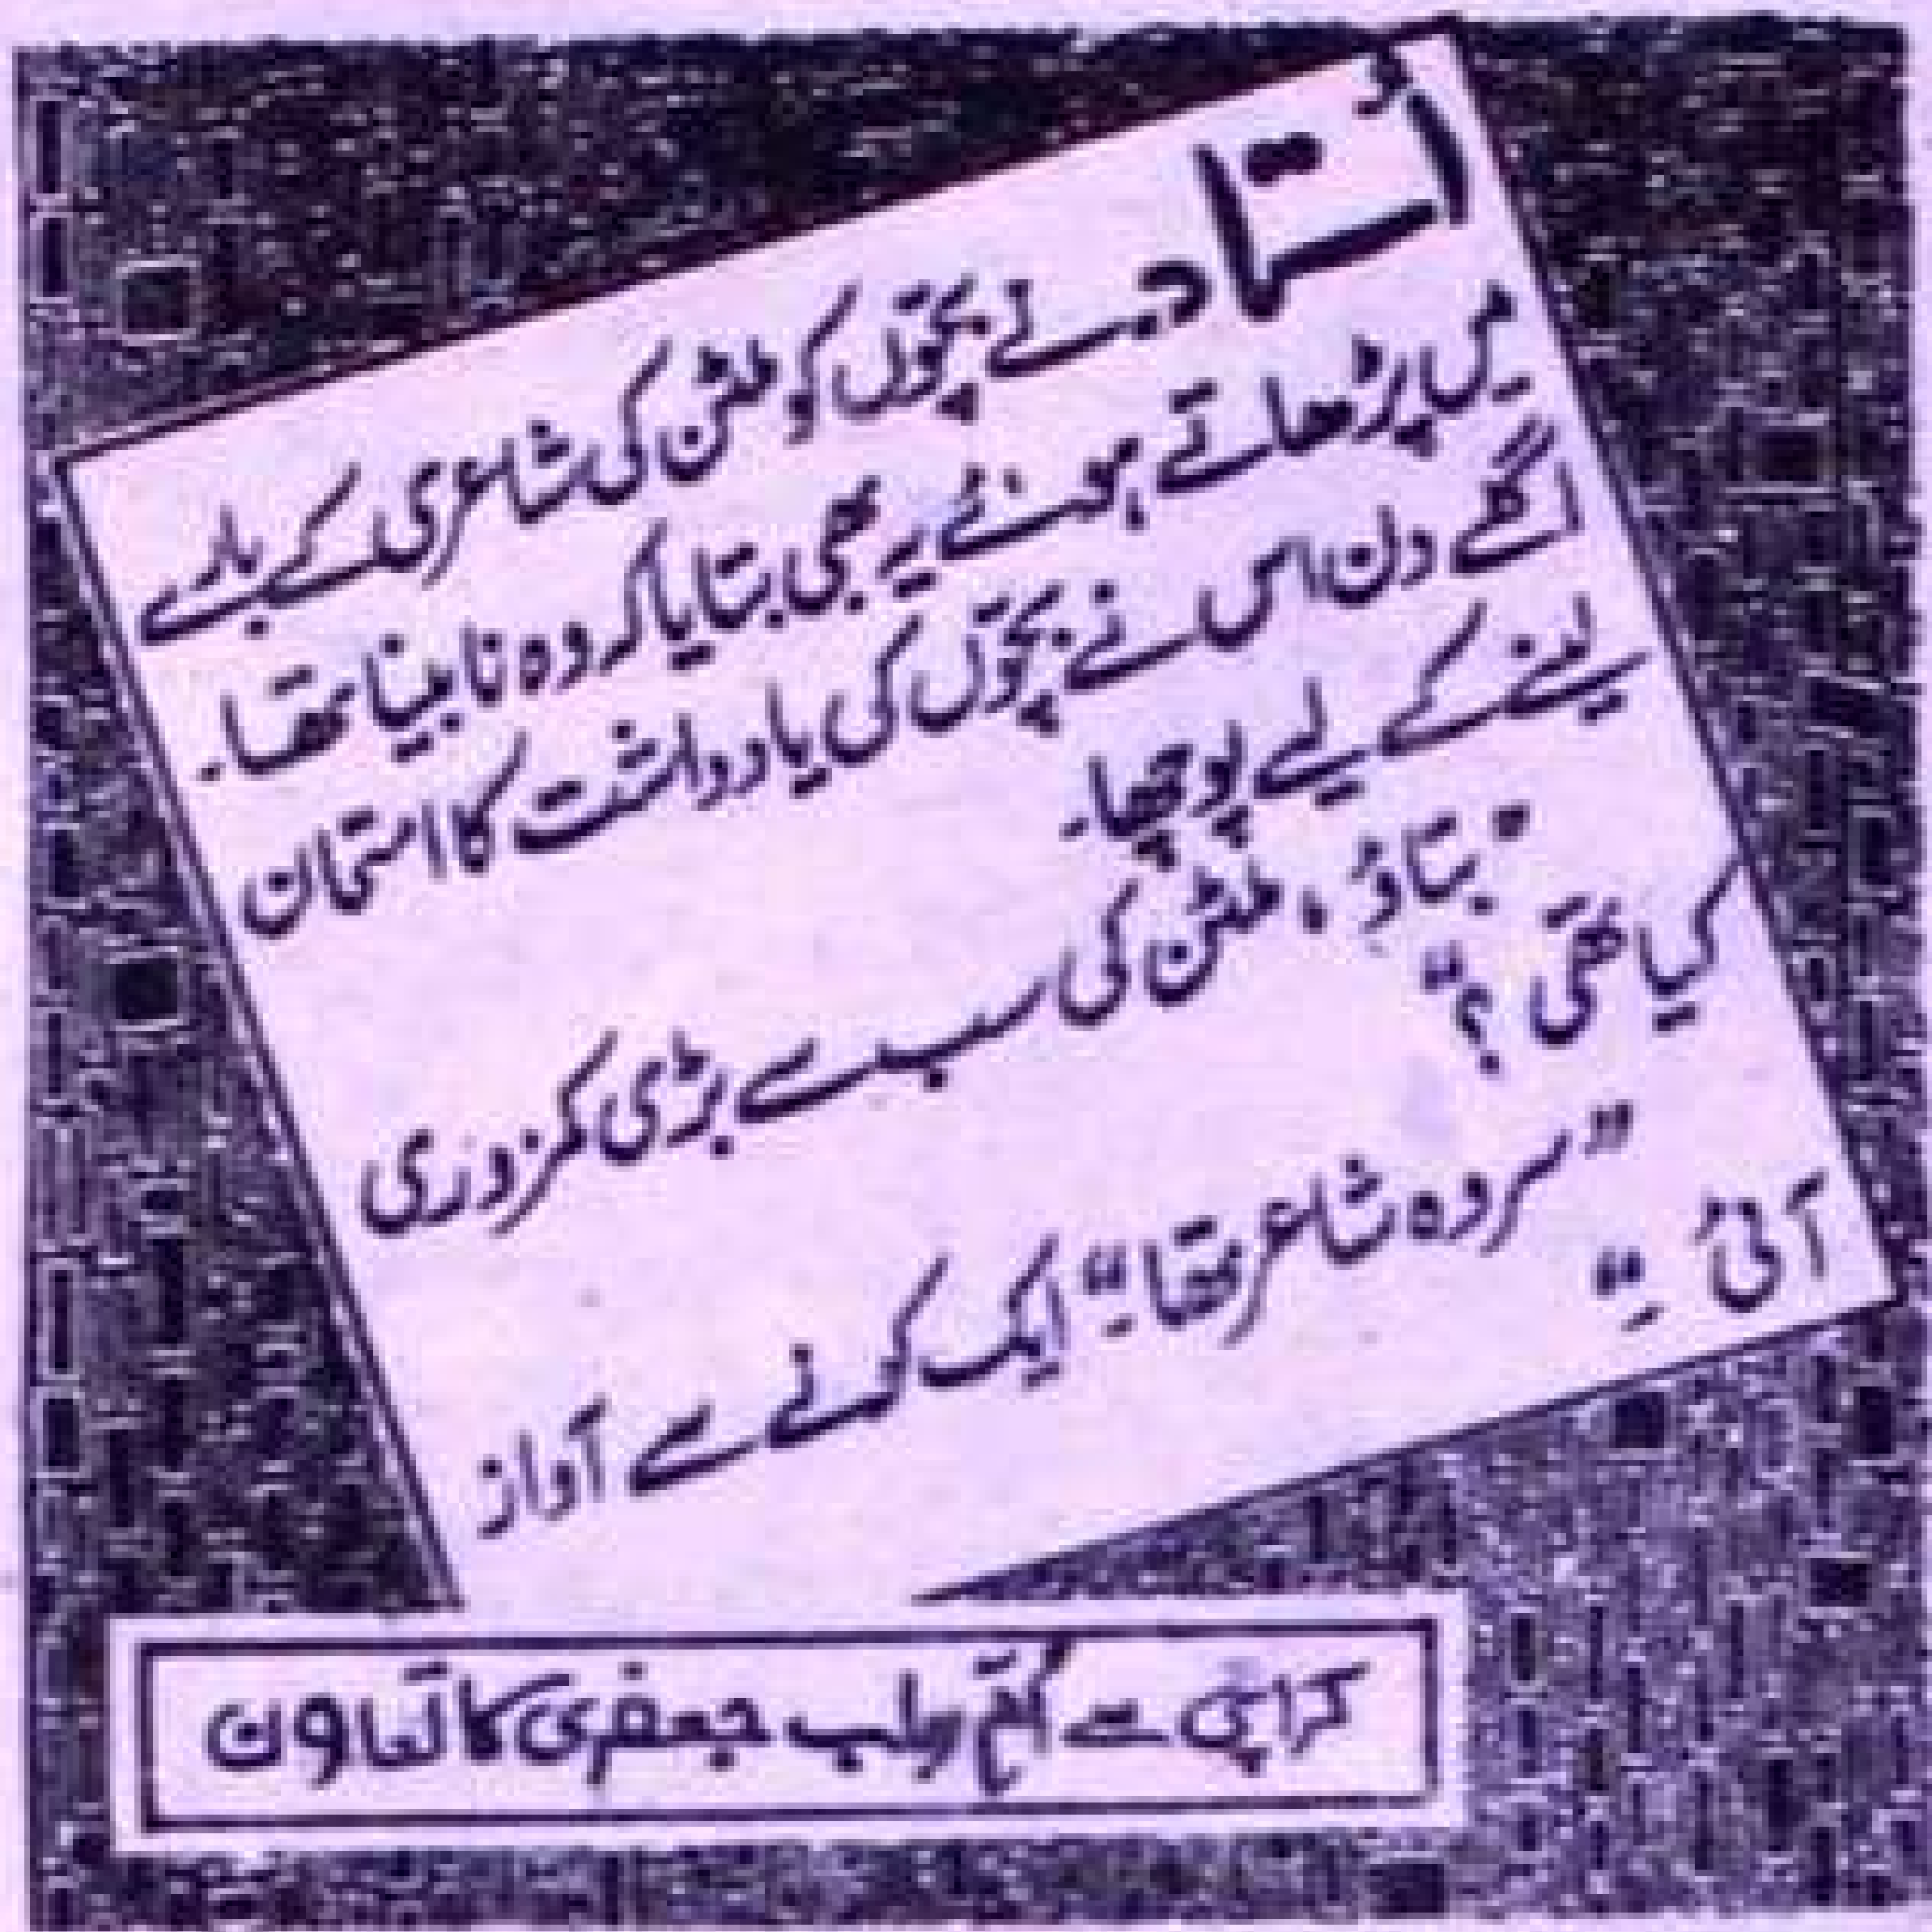 استاد نے بچّوں کو ملٹن کی شاعری کے بارے
میں پڑھاتے ہوئے یہ بھی بتایا کہ وہ نابینا تھا۔
اگلے دن اس نے بچّوں کی یادداشت کا امتحان
لینے کے لیے پوچھا۔
"بتاؤ، ملٹن کی سب سے بڑی کمزوری
کیا تھی؟"
"سر وہ شاعر تھا۔" ایک کونے سے آواز
آئی۔"
کراچی سے رباب جعفری کا تعاون